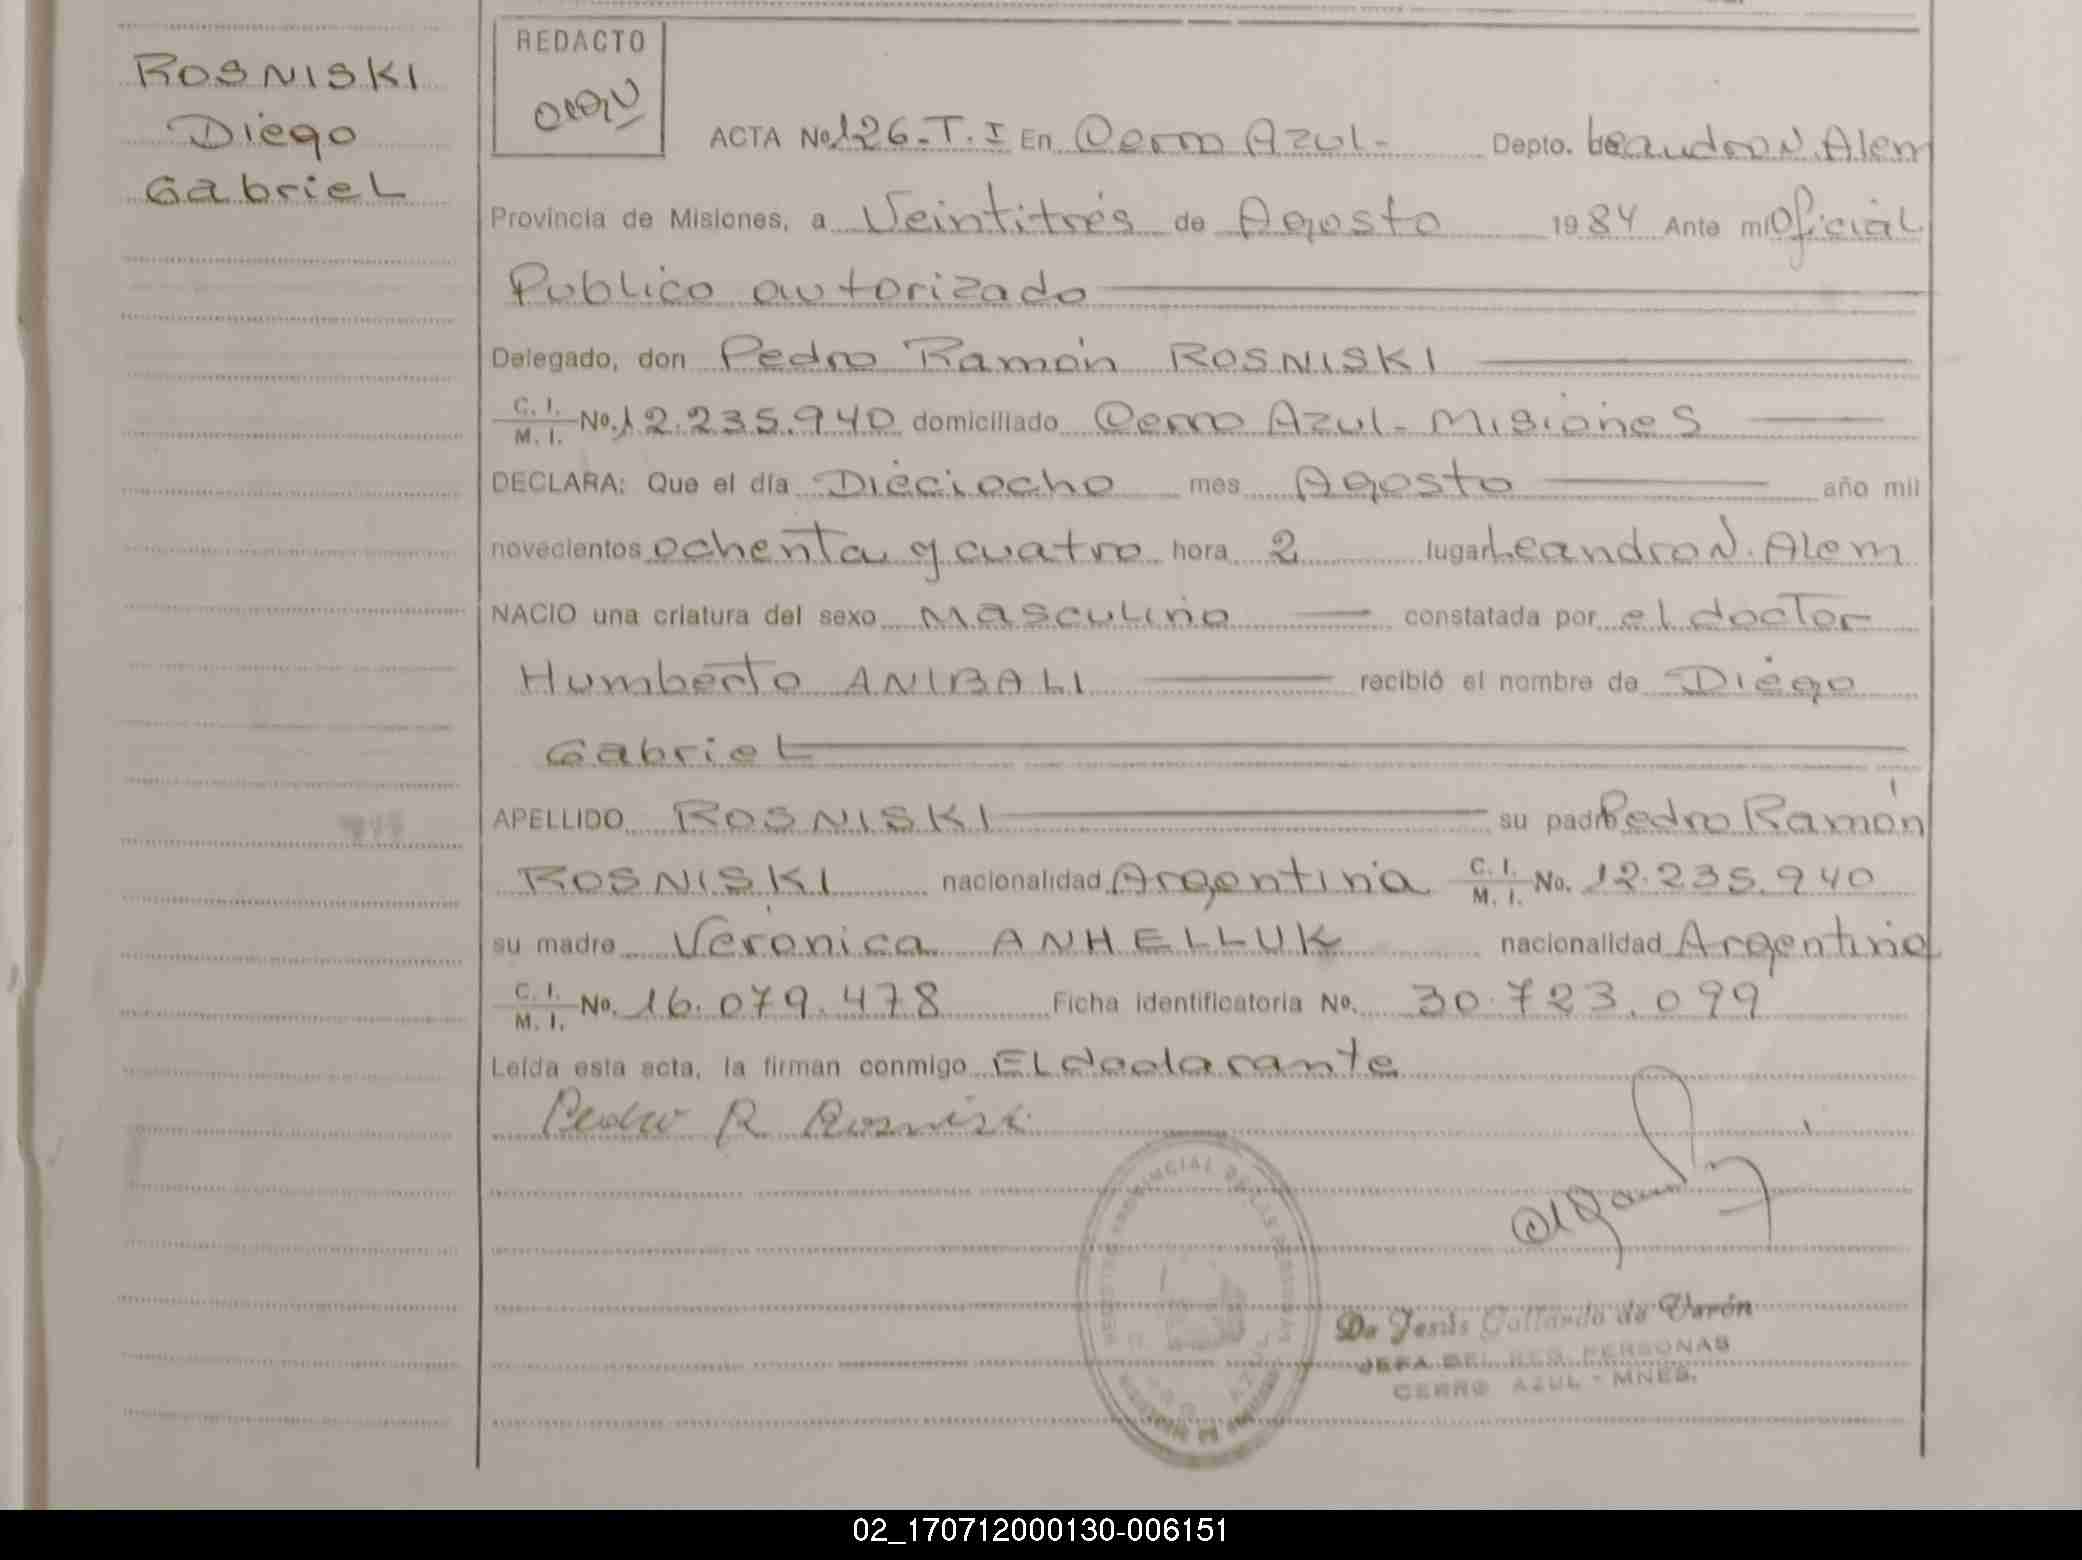 ROSNISKI
Diego
Gabriel
REDACTO
ACTA No 126-T.I En Cerro Azul- Depto. Leandro N. Alem
Provincia de Misiones, a Veintitrés de Agosto 1984 Ante mi Oficial
Publico autorizado
Delegado, don Pedro Ramón ROSNISKI
C. I. / M. I. No. 12.235.940 domiciliado Cerro Azul- Misiones
DECLARA: Que el día Dieciocho mes Agosto año mil
novecientos ochenta y cuatro hora 2 lugar Leandro N. Alem
NACIO una criatura del sexo Masculino constatada por el doctor
Humberto ANIBALI recibió el nombre de Diego
Gabriel
APELLIDO ROSNISKI su padre Pedro Ramón
ROSNISKI nacionalidad Argentina C. I. / M. I. No. 12.235.940
su madre Verónica ANHELLUK nacionalidad Argentina
C. I. / M. I. No. 16.079.478 Ficha identificatoria No. 30.723.099
Leída esta acta, la firman conmigo El declarante
Pedro R Rosniski
De Jesús Gallardo de Varón
JEFA DEL REG. PERSONAS
CERRO AZUL - MNES.
02_170712000130-006151